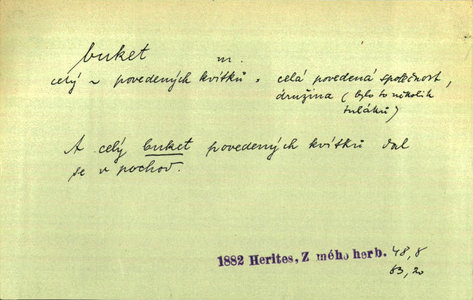 buket m.
celý ~ povedených kvítků = celá povedená společnost,
družina (bylo to několik
tuláků)
A celý buket povedených kvítků dal
se v pochod.
1882 Herites, Z mého herb. 48, 8
83, 20